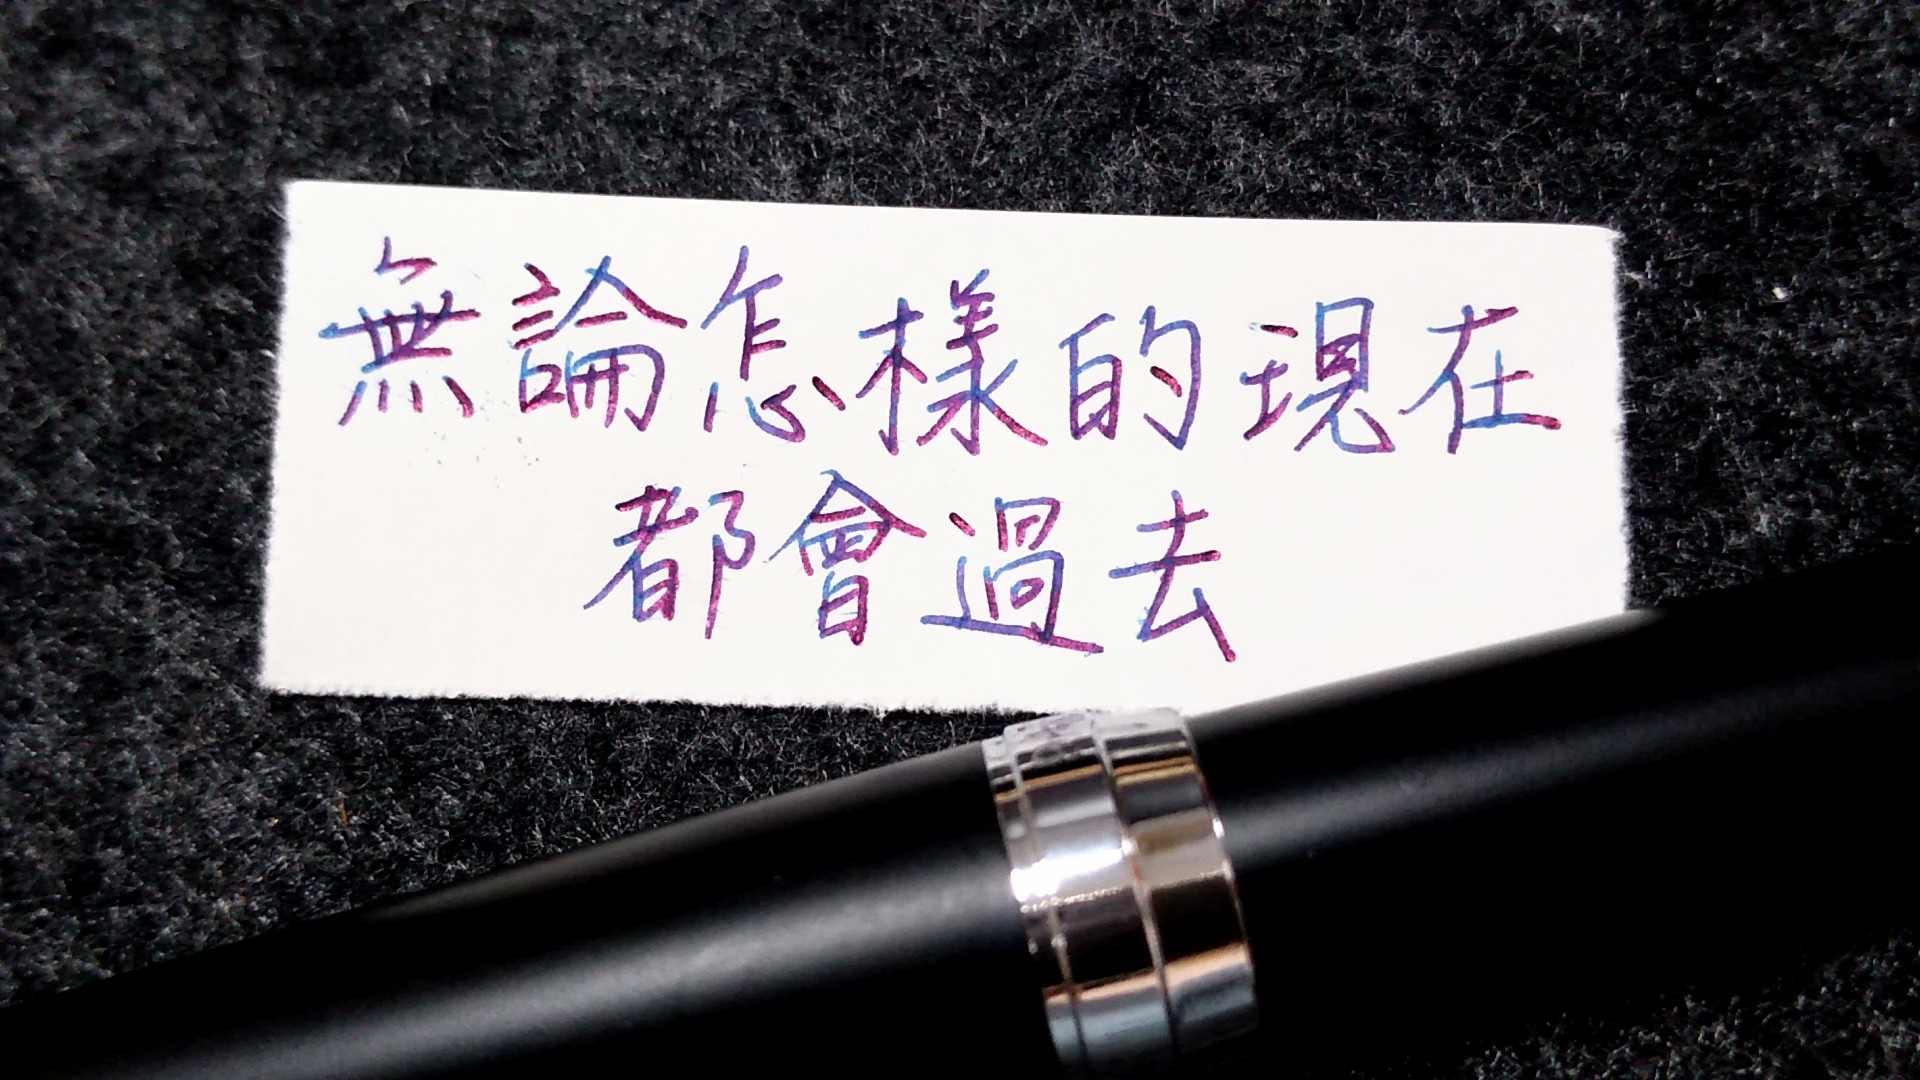 無論怎樣的現在
都會過去